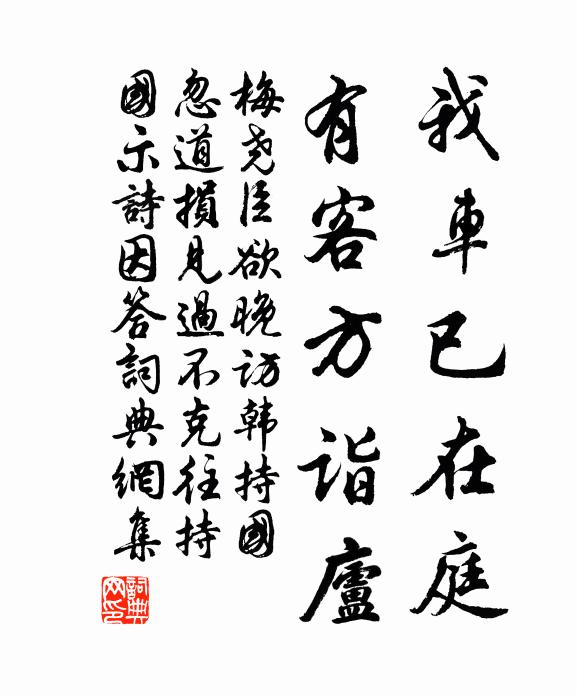 我車已在庭
有客方詣廬
梅堯臣欲晚訪韩持國
忽道損見過不克往持
國示詩因答詞典網集
詞典
网印